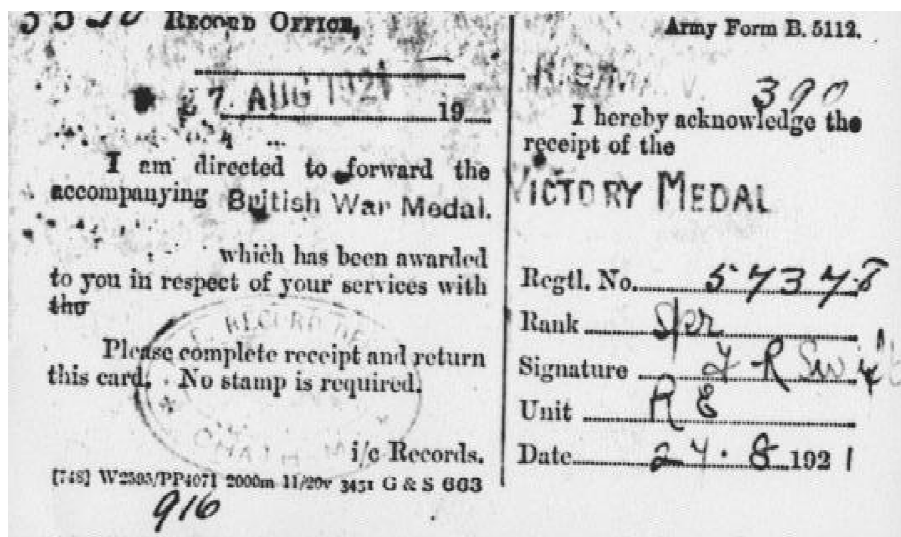 RECORD OFFICE,
AUG 1921
19
I am directed to forward the
accompanying British War Medal.
which has been awarded
to you in respect of your services with
the
Please complete receipt and return
this card. No stamp is required.
i/c Records.
G & S 603
916
Army Form B. 5112.
390
I hereby acknowledge the
receipt of the
VICTORY MEDAL
Regtl. No. 57378
Rank Spr
Signature F R Swift
Unit R E
Date 24.8.1921